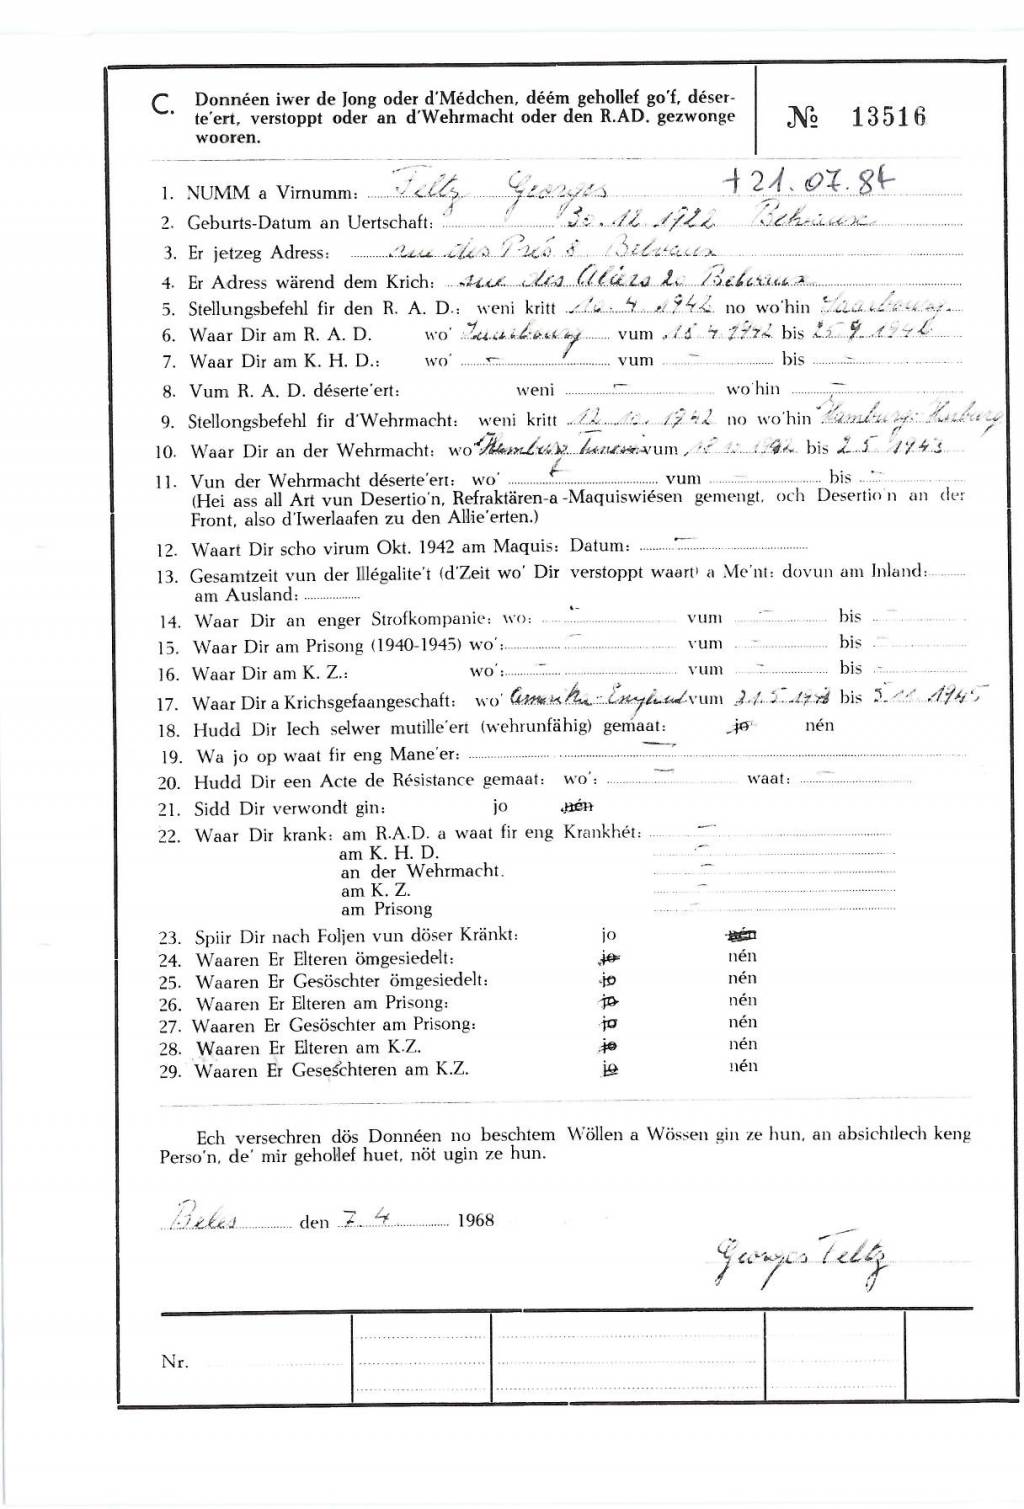 C. Donnéen iwer de Jong oder d'Médchen, déém gehollef go'f, déser-
te'ert, verstoppt oder an d'Wehrmacht oder den R.AD. gezwonge
wooren.
№ 13516
1. NUMM a Virnumm: Feltz Georges + 21.07.84
2. Geburts-Datum an Uertschaft: 30.12.1922 Belvaux
3. Er jetzeg Adress: rue des Prés 8 Belvaux
4. Er Adress wärend dem Krich: rue des Aliers 20 Belvaux
5. Stellungsbefehl fir den R. A. D.: weni kritt 10.4.1942 no wo'hin Saarbourg
6. Waar Dir am R. A. D. wo' Saarbourg vum 18 4 1942 bis 25 9 1942
7. Waar Dir am K. H. D.: wo' – vum – bis –
8. Vum R. A. D. déserte'ert: weni – wo'hin –
9. Stellongsbefehl fir d'Wehrmacht: weni kritt 12.10.1942 no wo'hin Hamburg-Harburg
10. Waar Dir an der Wehrmacht: wo' Hamburg Tunesien vum 1942 bis 2 5 1943
11. Vun der Wehrmacht déserte'ert: wo' – vum – bis –
(Hei ass all Art vun Desertio'n, Refraktären-a-Maquiswiésen gemengt, och Desertio'n an der
Front, also d'Iwerlaafen zu den Allie'erten.)
12. Waart Dir scho virum Okt. 1942 am Maquis: Datum: –
13. Gesamtzeit vun der Illégalite't (d'Zeit wo' Dir verstoppt waart) a Me'nt: dovun am Inland:
am Ausland:
14. Waar Dir an enger Strofkompanie: wo: – vum – bis –
15. Waar Dir am Prisong (1940-1945) wo': – vum – bis –
16. Waar Dir am K. Z.: wo': – vum – bis –
17. Waar Dir a Krichsgefaangeschaft: wo' Amerika-England vum 21.5.1943 bis 5.11.1945
18. Hudd Dir Iech selwer mutille'ert (wehrunfähig) gemaat: jo nén
19. Wa jo op waat fir eng Mane'er: –
20. Hudd Dir een Acte de Résistance gemaat: wo': – waat: –
21. Sidd Dir verwondt gin: jo nén
22. Waar Dir krank: am R.A.D. a waat fir eng Krankhét: –
am K. H. D. –
an der Wehrmacht. –
am K. Z. –
am Prisong –
23. Spiir Dir nach Foljen vun döser Kränkt: jo nén
24. Waaren Er Elteren ömgesiedelt: jo nén
25. Waaren Er Gesöschter ömgesiedelt: jo nén
26. Waaren Er Elteren am Prisong: jo nén
27. Waaren Er Gesöschter am Prisong: jo nén
28. Waaren Er Elteren am K.Z. jo nén
29. Waaren Er Geseschteren am K.Z. jo nén
Ech versechren dös Donnéen no beschtem Wöllen a Wössen gin ze hun, an absichtlech keng
Perso'n, de' mir gehollef huet, nöt ugin ze hun.
Beles den 7.4 1968
Georges Feltz
Nr.